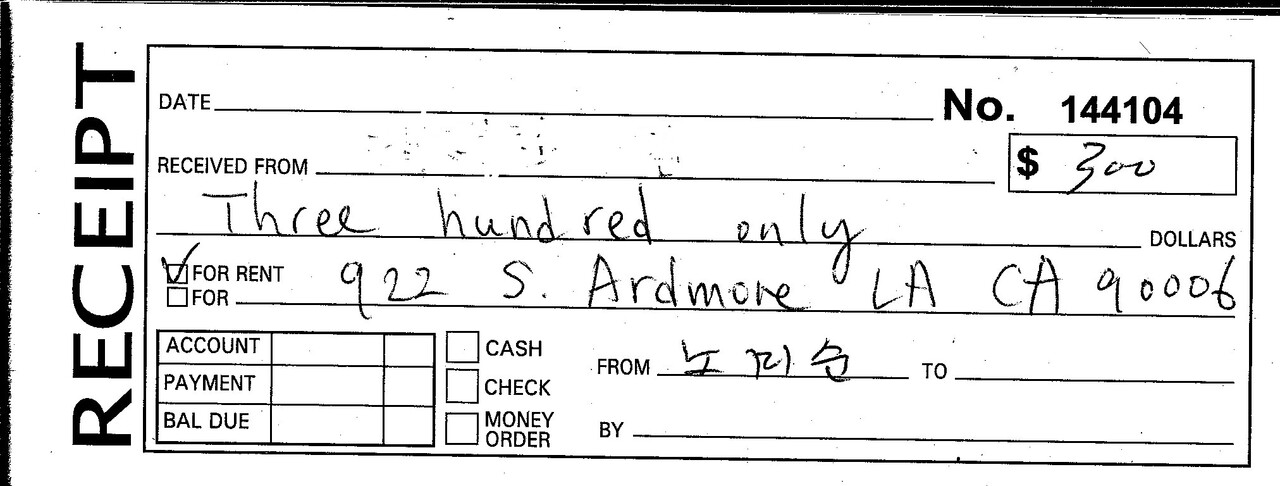 RECEIPT
DATE No. 144104
RECEIVED FROM $ 300
Three hundred only DOLLARS
FOR RENT 922 S. Ardmore LA CA 90006
FOR
ACCOUNT CASH
FROM 노지승 TO
PAYMENT CHECK
BAL DUE MONEY ORDER BY